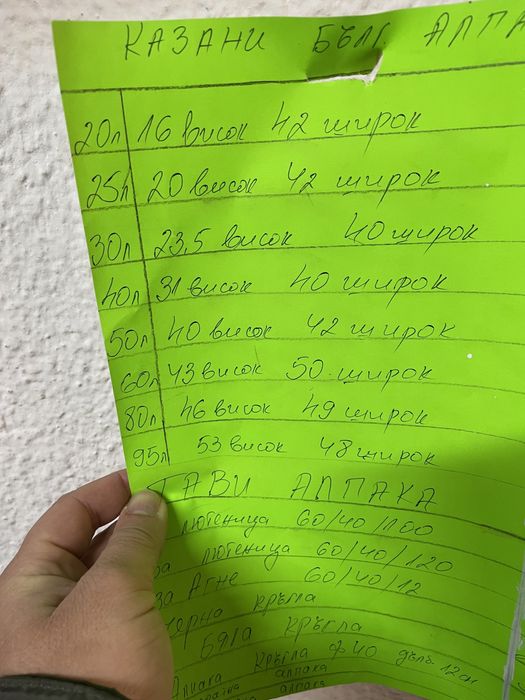 КАЗАНИ БЪЛГ АЛПА
20л 16 висок 42 широк
25л 20 висок 42 широк
30л 23,5 висок 40 широк
40л 31 висок 40 широк
50л 40 висок 42 широк
60л 43 висок 50 широк
80л 46 висок 49 широк
95л 53 висок 48 широк
ТАВИ АЛПАКА
лютеница 60/40/100
за лютеница 60/40/120
за Агне 60/40/12
черна кръгла
Бяла кръгла
Алпака кръгла ф40 дълб. 12см
алпака
алпака